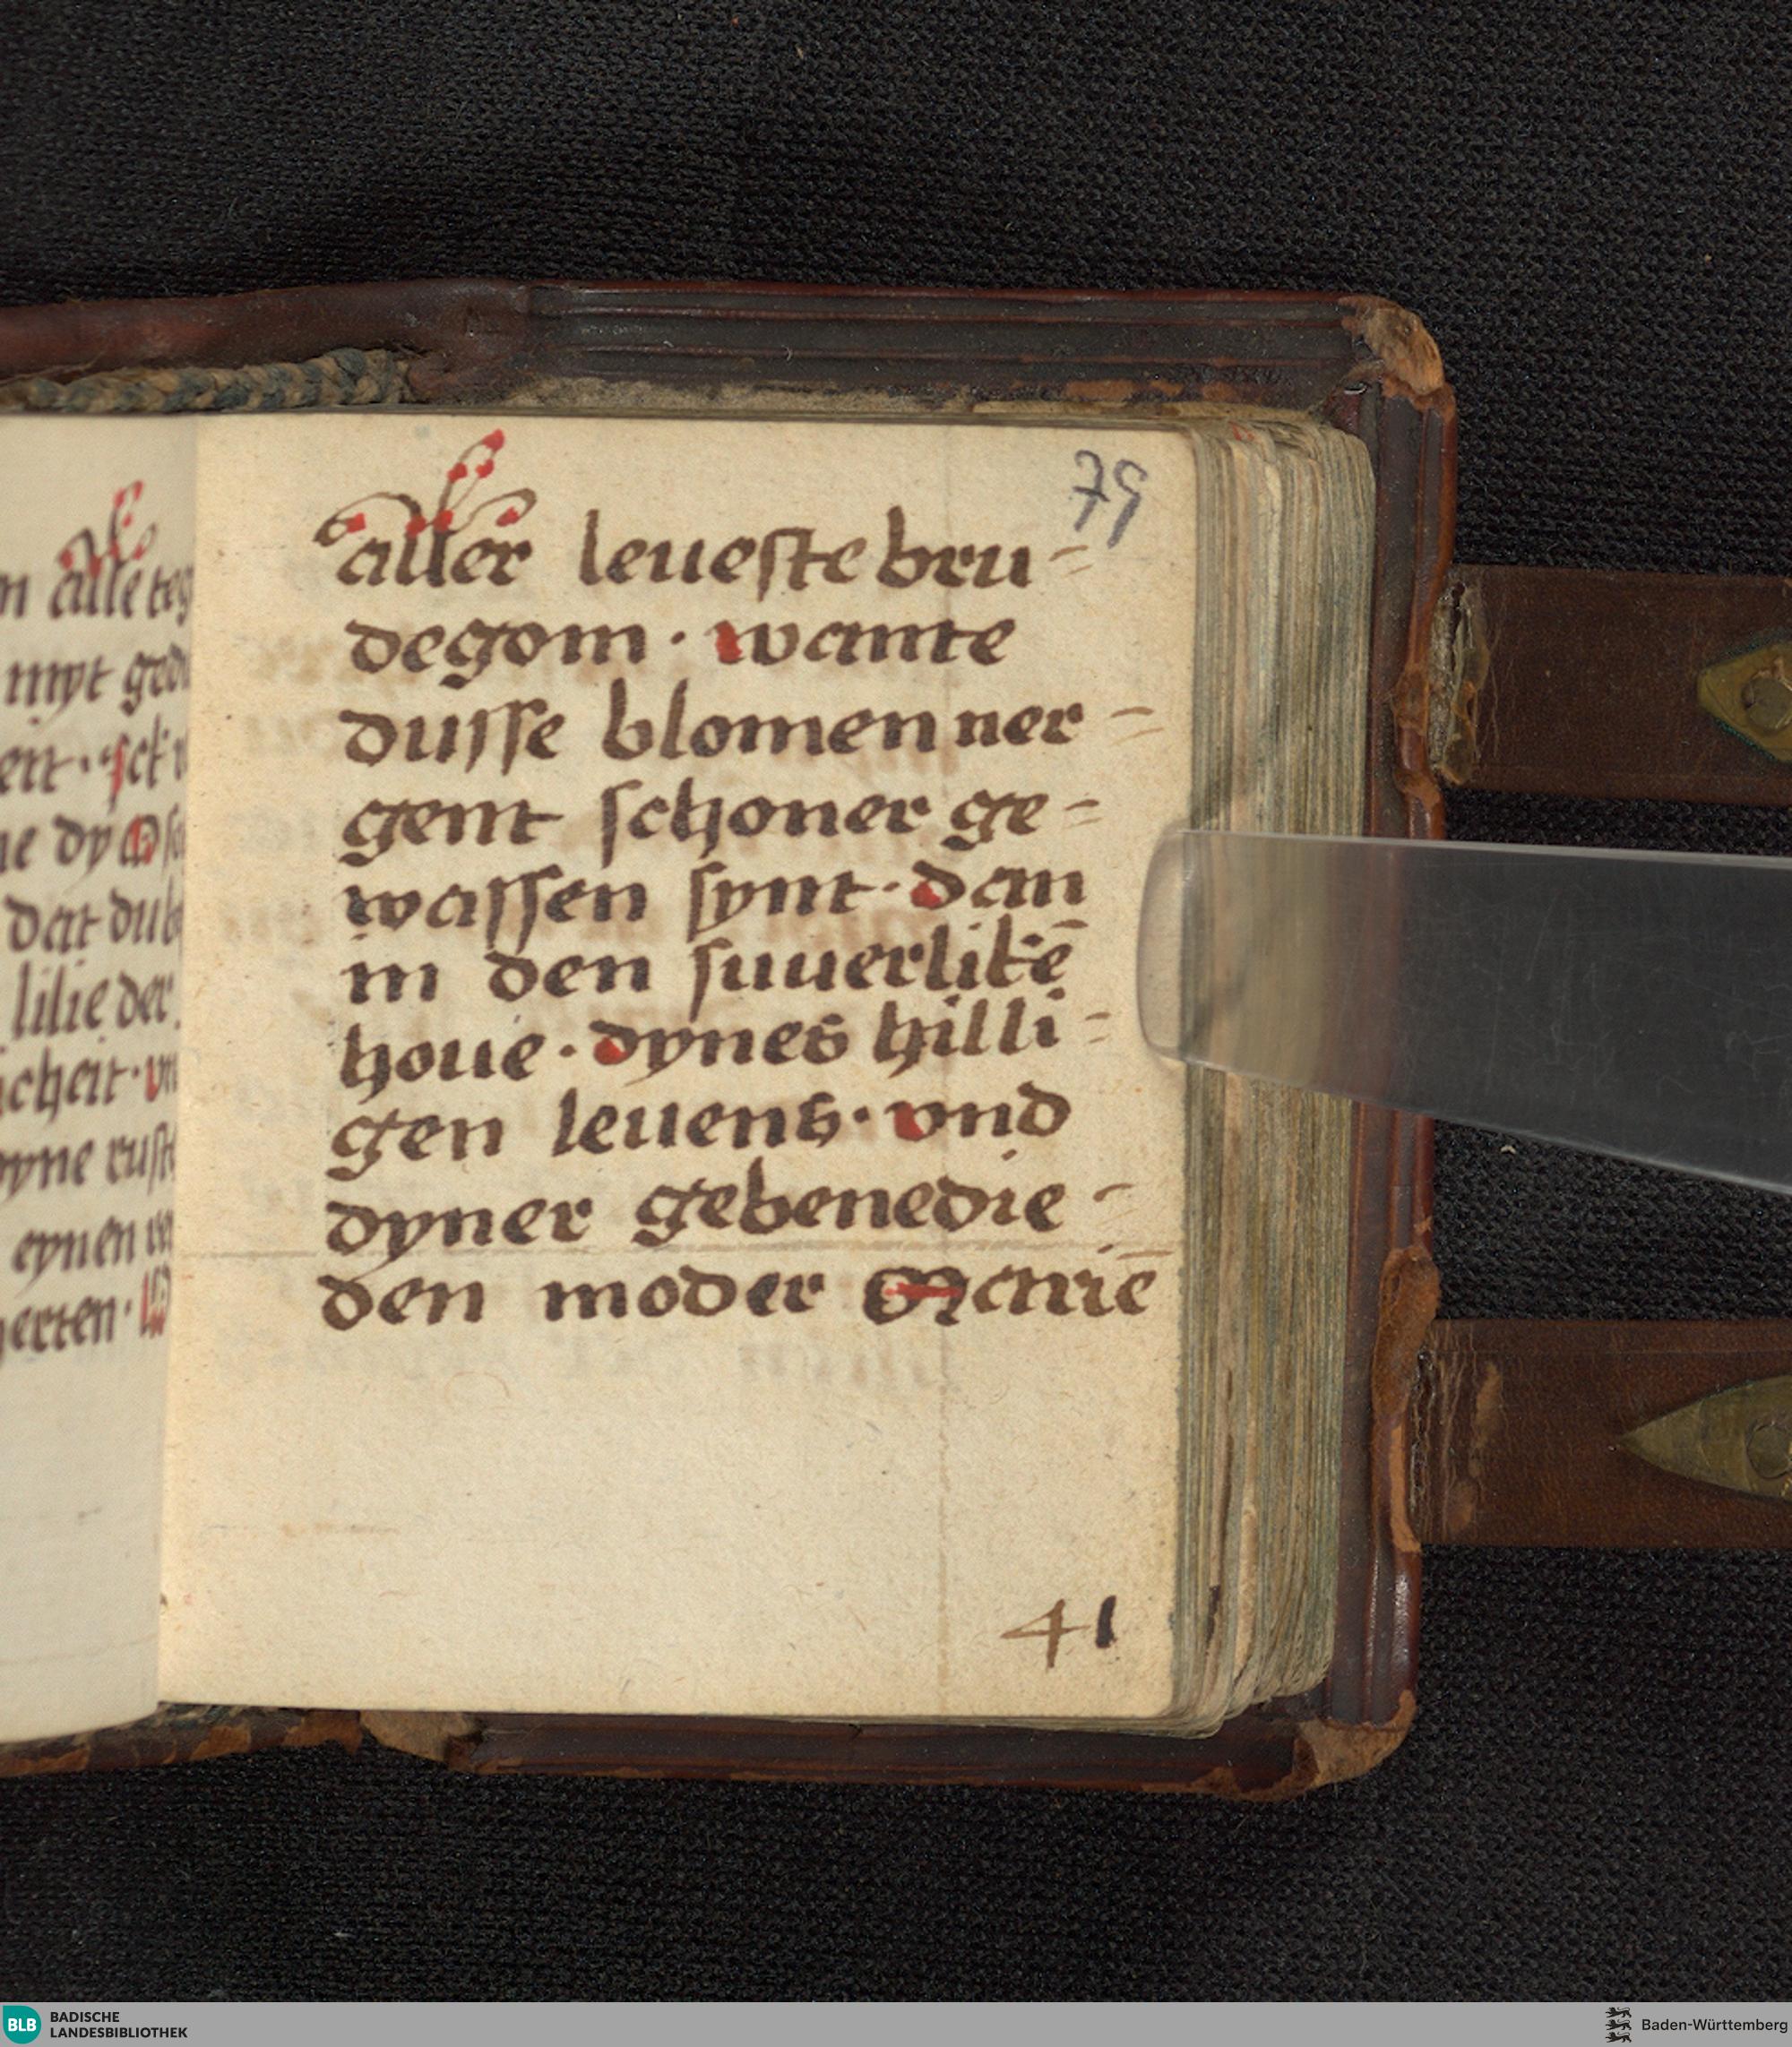 n alle teg
myt ged
eit · Jck
ne dy
dat du
lilie der
icheit · vn
pyne rust
eynen
gerten ·
79
aller leueste bru=
degom · wante
dusse blomen ner=
gent schoner ge=
wassen synt · dan
in den suuerlikē
houe · dynes hilli=
gen leuens · vnd
dyner gebenedie=
den moder Mariē
41
BLB BADISCHE
LANDESBIBLIOTHEK
Baden-Württemberg